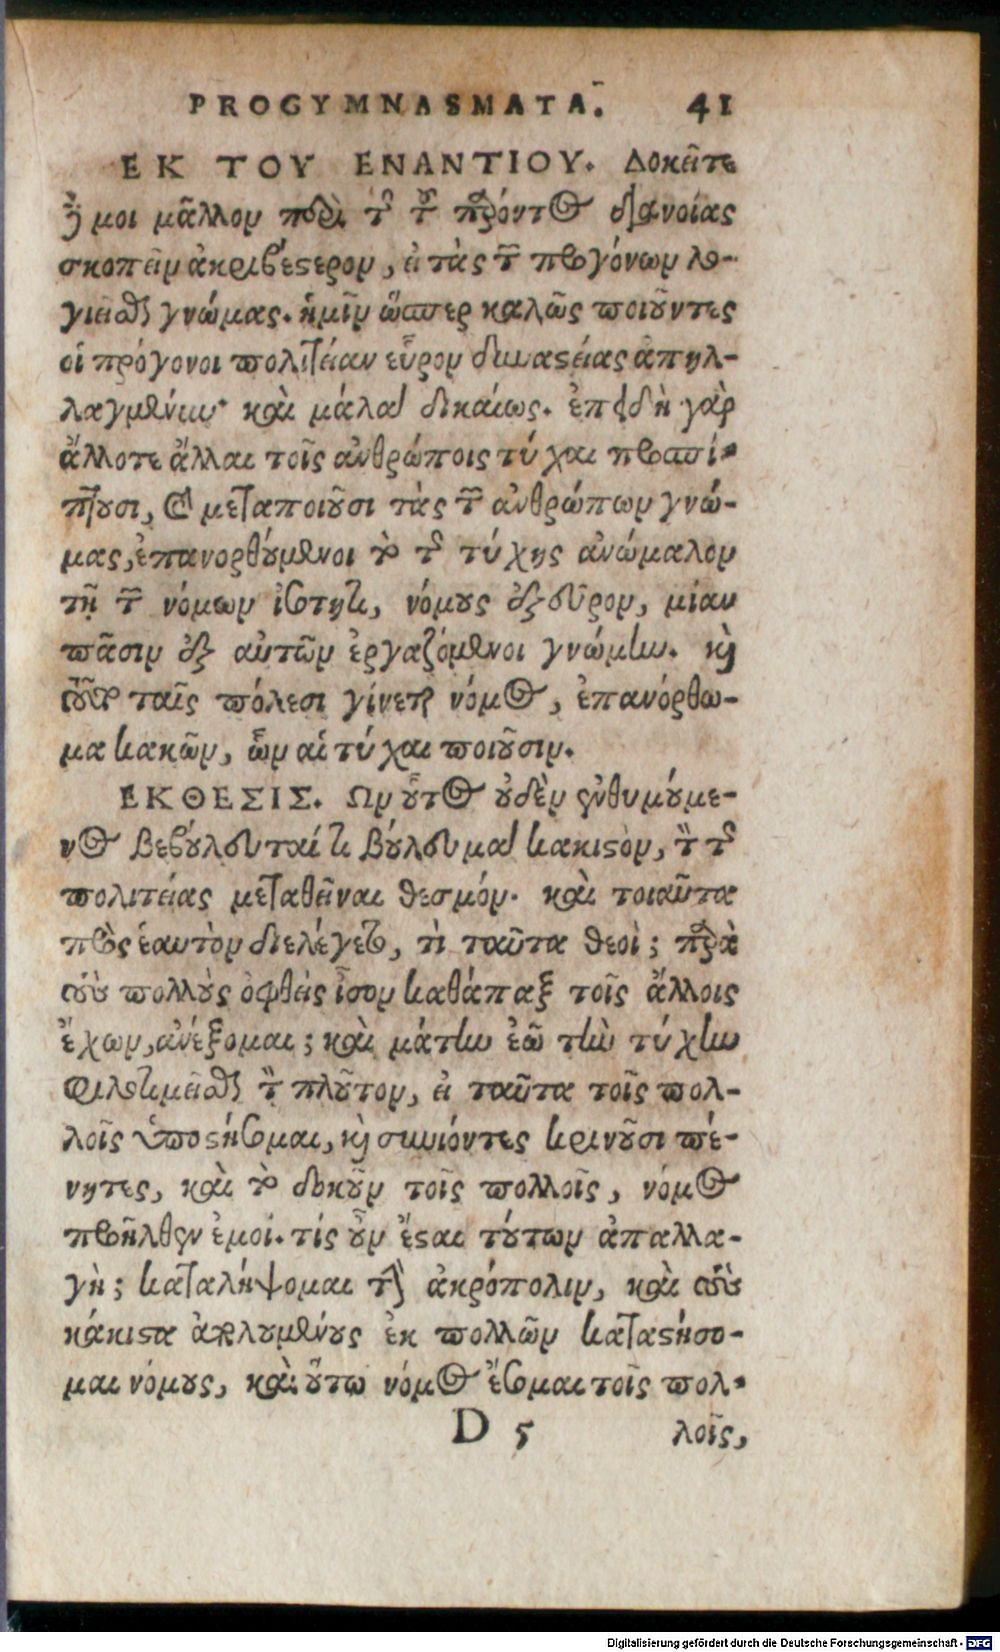 PROGYMNASMATA. 41
ΕΚ ΤΟΥ ΕΝΑΝΤΙΟΥ. Δοκεῖτε
δέ μοι μᾶλλον περὶ τῆς τοῦ παρόντος διανοίας
σκοπεῖν ἀκριβέστερον, εἰ τὰς τῶν προγόνων λο-
γιεῖσθε γνώμας. ἡμῖν ὥσπερ καλῶς ποιοῦντες
οἱ πρόγονοι πολιτείαν εὗρον δυναστείας ἀπηλ-
λαγμένην· καὶ μάλα δικαίως. ἐπειδὴ γὰρ
ἄλλοτε ἄλλαι τοῖς ἀνθρώποις τύχαι προσπί-
πτουσι, καὶ μεταποιοῦσι τὰς τῶν ἀνθρώπων γνώ-
μας, ἐπανορθούμενοι τὸ τῆς τύχης ἀνώμαλον
τῇ τῶν νόμων ἰσότητι, νόμους ἐξεῦρον, μίαν
πᾶσιν ἐξ αὐτῶν ἐργαζόμενοι γνώμην. καὶ
τοῦτο ταῖς πόλεσι γίνεται νόμος, ἐπανόρθω-
μα κακῶν, ὧν αἱ τύχαι ποιοῦσιν.
ΕΚΘΕΣΙΣ. Ων οὗτος οὐδὲν ἐνθυμούμε-
νος βεβούλευταί τι βούλευμα κάκιστον, τὸ τῆς
πολιτείας μεταθεῖναι θεσμόν. καὶ τοιαῦτα
πρὸς ἑαυτὸν διελέγετο, τὶ ταῦτα θεοὶ; παρὰ
τοὺς πολλοὺς ὀφθεὶς ἶσον καθάπαξ τοῖς ἄλλοις
ἔχων, ἀνέξομαι; καὶ μάτην ἐῶ τὴν τύχην
φιλοτιμεῖσθαι τὸν πλοῦτον, εἰ ταῦτα τοῖς πολ-
λοῖς ὑποστήσομαι, καὶ συνιόντες κρινοῦσι πέ-
νητες, καὶ τὸ δοκοῦν τοῖς πολλοῖς, νόμος
προῆλθεν ἐμοί. τίς οὖν ἔσται τούτων ἀπαλλα-
γὴ; καταλήψομαι τὴν ἀκρόπολιν, καὶ τοὺς
κάκιστα ἀπολουμένους ἐκ πολλῶν καταστήσο-
μαι νόμους, καὶ οὕτω νόμος ἔσομαι τοῖς πολ-
D 5 λοῖς,
Digitalisierung gefördert durch die Deutsche Forschungsgemeinschaft - DFG